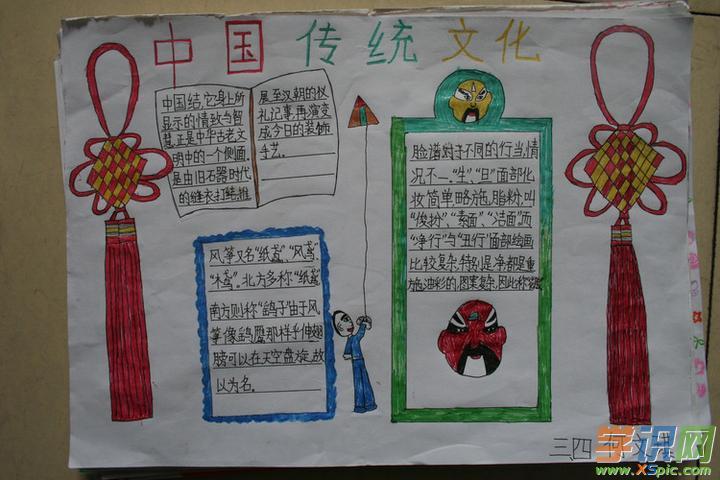 中国传统文化
中国结,它身上所
显示的情致与智
慧正是中华古老文
明中的一个侧面.
是由旧石器时代
的缝衣打结,推
展至汉朝的仪
礼记事,再演变
成今日的装饰
手艺.
脸谱对于不同的行当,情
况不一."生"、"旦"面部化
妆简单,略施脂粉,叫
"俊扮"、"素面"、"洁面"而
"净行"与"丑行"面部绘画
比较复杂,特别是净,都是重
施油彩的,图案复杂,因此称
风筝又名"纸鸢"、"风鸢"、
"木鸢".北方多称"纸鸢"
南方则称"鹞子"由于风
筝像鹞鹰那样平伸翅
膀可以在天空盘旋,故
以为名.
三、四
学识网
www.xspic.com